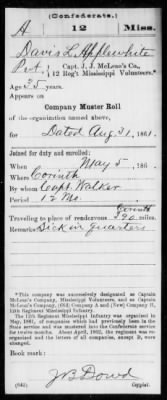 (Confederate.)
A 12 Miss.
Davis L. Applewhite
Pvt., Capt. J. J. McLean's Co.,
12 Reg't Mississippi Volunteers.*
Age 25 years.
Appears on
Company Muster Roll
of the organization named above,
for Dated Aug 31, 1861.
Joined for duty and enrolled:
When May 5, 186
Where Corinth
By whom Capt. Walker
Period 12 Mo.
Corinth
Traveling to place of rendezvous 390 miles.
Remarks: Sick in quarters
*This company was successively designated as Captain
McLean's Company, Mississippi Volunteers, and as Captain
McLean's Company, (Old) Company A and (New) Company
12th Regiment Mississippi Infantry.
The 12th Regiment Mississippi Infantry was organized in
May, 1861, of companies which had previously been in the
State service and were mustered into the Confederate service
for twelve months. About April, 1862, the regiment was re-
organized and the letters of all companies, except E, were
changed.
Book mark:
J B Dowd
(642) Copyist.